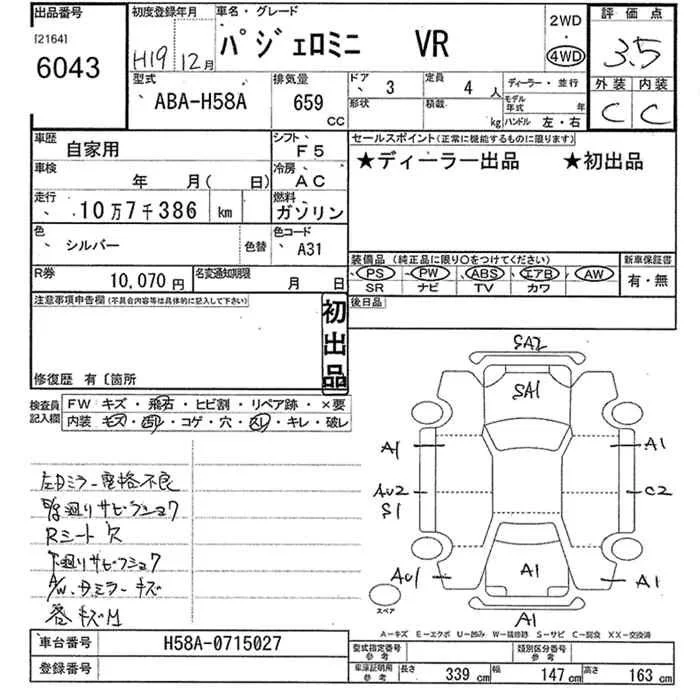 出品番号 初度登録年月 車名・グレード 2WD 評価点
[2164] H19 12月 パジェロミニ VR 4WD 3.5
6043 型式 排気量 ドア 3 定員 4人 ディーラー・並行 外装 内装
ABA-H58A 659 CC 形状 積載 kg モデル年式 年 ハンドル 左・右 C C
車歴 自家用 シフト F5 セールスポイント(正常に機能するものに限ります)
車検 年 月( 日) 冷房 AC ★ディーラー出品 ★初出品
走行 10万7千386 km 燃料 ガソリン
色 シルバー 色替 色コード A31 装備品(純正品に限り○をつけてください) 新車保証書
R券 10,070円 名変通知期限 月 日 PS PW ABS エアB AW 有・無
SR ナビ TV カワ
注意事項申告欄(不具合内容等は具体的に記入して下さい) 初出品 後日品
修復歴 有〔箇所
検査員記入欄 FW キズ・飛石・ヒビ割・リペア跡・×要
内装 キズ・凹・コゲ・穴・スレ・キレ・破レ
左Dミラー電格不良
廻りサビフショク
Rシート穴
下廻りサビフショク
A/W、Dミラーキズ
キズM
SA2
SA1
A1 A1
AU2 C2
S1
AU1 A1 A1
スペア A1
A-キズ E-エクボ U-凹み W-補修跡 S-サビ C-腐食 XX-交換済
車台番号 H58A-0715027 型式指定番号 参考 類別区分番号 参考
登録番号 車庫証明用 参考 長さ 339 cm 幅 147 cm 高さ 163 cm